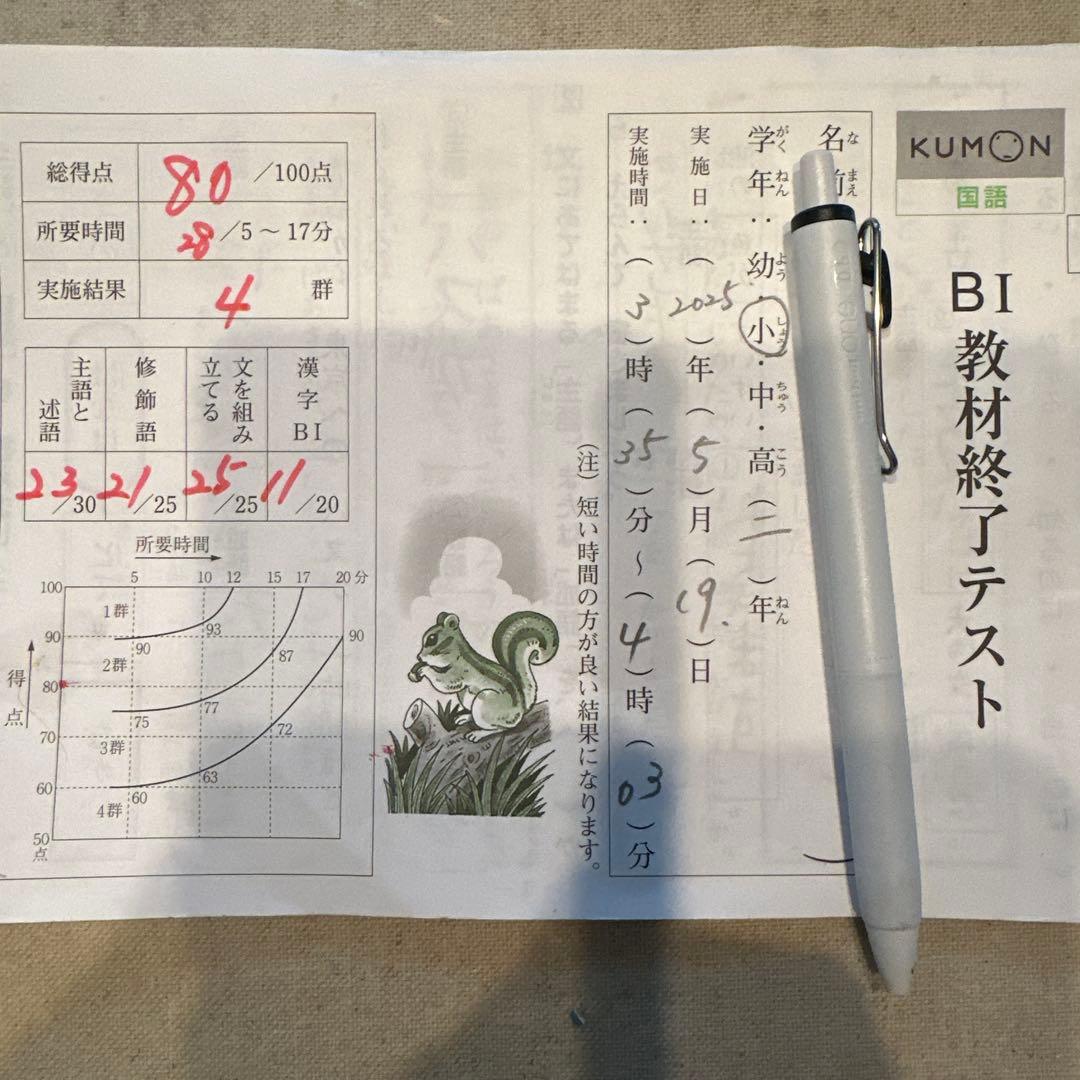 KUMON
国語
BI教材終了テスト
名前
なまえ
学年：幼・小・中・高（三）年
がくねん よう しょう ちゅう こう ねん
実施日：（2025）年（5）月（19.）日
実施時間：（3）時（35）分～（4）時（03）分
（注）短い時間の方が良い結果になります。
総得点 80 /100点
所要時間 28 /5～17分
実施結果 4 群
漢字BI 11 /20
文を組み立てる 25 /25
修飾語 21 /25
主語と述語 23 /30
所要時間
5 10 12 15 17 20分
得点
100
90
80
70
60
50点
1群
2群
3群
4群
90 93
75 77 87
60 63 72 90